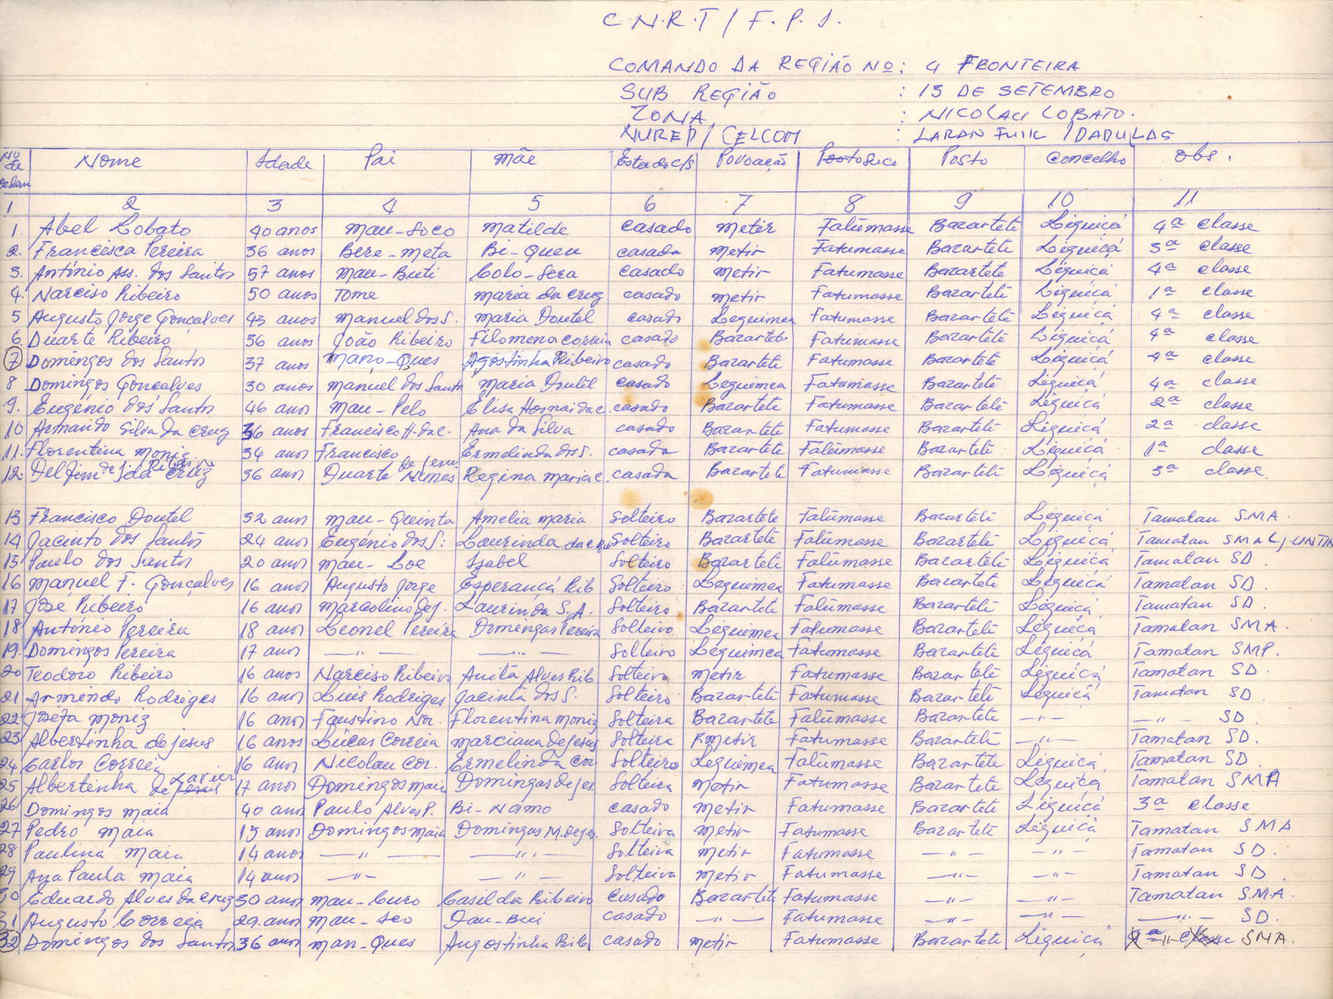 C.N.R.T / F.P.I.
COMANDO DA REGIÃO Nº : 4 FRONTEIRA
SUB REGIÃO : 15 DE SETEMBRO
ZONA : NICOLAU LOBATO.
NUREP / CELCOM : LARAN FUIK / DADULAS
Nº de orden Nome Idade Pai Mãe Estado c/s Povoação Suco Posto Concelho Obs.
1 2 3 4 5 6 7 8 9 10 11
1. Abel Lobato 40 anos Mau-Soco Matilde casado Metir Fatumasse Bazartete Liquiçá 4ª classe
2. Francisca Pereira 36 anos Bere-Meta Bi-Queu casada Metir Fatumasse Bazartete Liquiçá 3ª classe
3. António Ass. dos Santos 57 anos Mau-Buti Colo-Sera casado Metir Fatumasse Bazartetê Liquiçá 4ª classe
4. Narciso Ribeiro 50 anos Tome Maria da Cruz casado Metir Fatumasse Bazartetê Liquiçá 1ª classe
5 Augusto Jorge Gonçalves 45 anos Manuel dos S. Maria Doutel casado Leguimea Fatumasse Bazartetê Liquiçá 4ª classe
6. Duarte Ribeiro 56 anos João Ribeiro Filomena correia casado Bazartete Fatumasse Bazartetê Liquiçá 4ª classe
7 Domingos dos Santos 37 anos Mano-Ques Agostinha Ribeiro casado Bazartete Fatumasse Bazartetê Liquiçá 4ª classe
8 Domingos Gonçalves 30 anos Manuel dos Santos Maria Doutel casado Leguimea Fatumasse Bazartetê Liquiçá 4ª classe
9. Eugénio dos Santos 46 anos Mau-Pelo Elisa casado Bazartete Fatumasse Bazartetê Liquiçá 2ª classe
10 Armando Silva da Cruz 36 anos Francisco H. da C. Ana da Silva casado Bazartete Fatumasse Bazartetê Liquiçá 2ª classe
11. Florentina Moniz 34 anos Francisco Ermelinda dos S. casada Bazartete Fatumasse Bazartetê Liquiçá 1ª classe
12. da Cruz 36 anos Duarte Nunes de Jesus Regina Maria C. casada Bazartete Fatumasse Bazartetê Liquiçá 3ª classe
13 Francisco Doutel 52 anos Mau-Quinta Amelia Maria Solteiro Bazartete Fatumasse Bazartetê Liquiçá Tamatan SMA.
14 Jacinto dos Santos 24 anos Eugénio dos S. Laurinda da Solteiro Bazartete Fatumasse Bazartetê Liquiçá Tamatan
15 Paulo dos Santos 20 anos Mau-Loe Izabel Solteiro Bazartete Fatumasse Bazartetê Liquiçá Tamatan SD.
16 Manuel F. Gonçalves 16 anos Augusto Jorge Esperança Rib Solteiro Leguimea Fatumasse Bazartetê Liquiçá Tamatan SD.
17 José Ribeiro 16 anos Marcolino de J. Laurinda S.A. Solteiro Bazartete Fatumasse Bazartetê Liquiçá Tamatan SD.
18 António Pereira 18 anos Leonel Pereira Domingas Pereira Solteiro Leguimea Fatumasse Bazartetê Liquiçá Tamatan SMA.
19. Domingos Pereira 17 anos — " — — " — Solteiro Leguimea Fatumasse Bazartetê Liquiçá Tamatan SMP.
20 Teodoro Ribeiro 16 anos Narciso Ribeiro Anita Alves Rib Solteiro Metir Fatumasse Bazartetê Liquiçá Tamatan SD.
21 Armendo Rodriges 16 anos Luis Rodriges Jacinta dos S. Solteiro Bazartetê Fatumasse Bazartetê Liquiçá Tamatan SD.
22 Josefa Moniz 16 anos Faustino Florentina Moniz Solteira Bazartete Fatumasse Bazartetê — " — — " — SD.
23 Albertinha de jesus 16 anos Lucas Correia Marciana de Jesus Solteira Metir Fatumasse Bazartetê — " — Tamatan SD.
24 Carlos Correia 16 anos Nicolau Cor. Ermelinda Cor Solteiro Leguimea Fatumasse Bazartete Liquiçá Tamatan SD.
25 Albertenha Xavier 17 anos Domingos maia Domingas de Jes Solteira Metir Fatumasse Bazartete Liquiçá Tamatan SMA
26 Domingos maia 40 anos Paulo Alves P. Bi-Namo casado Metir Fatumasse Bazartete Liquiçá 3ª classe
27 Pedro Maia 15 anos Domingos maia Domingas M. de Jes. Solteiro Metir Fatumasse Bazartetê Liquiçá Tamatan SMA
28 Paulina Maia 14 anos — " — — " — Solteira Metir Fatumasse — " — — " — Tamatan SD.
29 Ana Paula Maia 14 anos — " — — " — Solteira Metir Fatumasse — " — — " — Tamatan SD.
30 Eduardo Alves da Cruz 50 anos Mau-Curo Casilda Ribeiro Casado Bazartete Fatumasse — " — — " — Tamatan SMA.
31 Augusto Correia 29 anos Mau-Seo Dau-Bui casado — " — Fatumasse — " — — " — — " — SD.
32 Domingos dos Santos 36 anos Man-Ques Augostinha Rib casado Metir Fatumasse Bazartetê Liquiçá SMA.